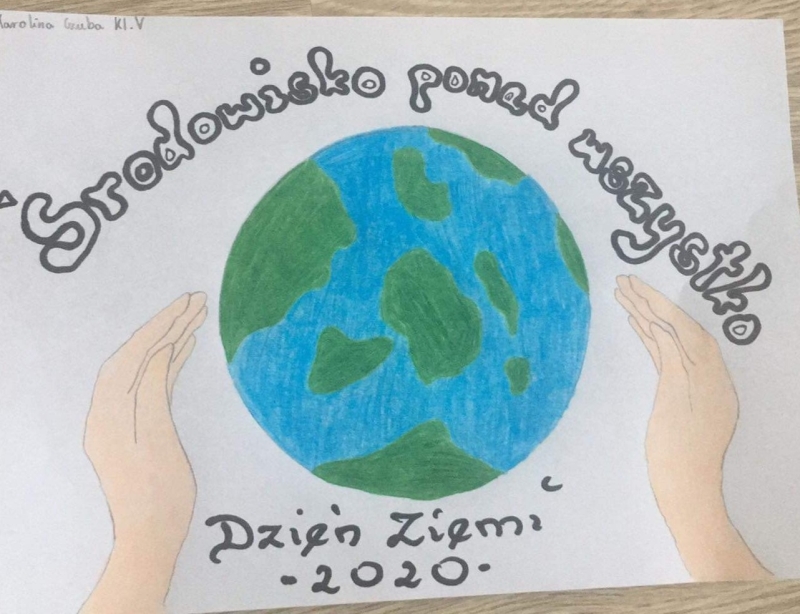 Karolina Kl. V
Środowisko ponad wszystko
Dzień Ziemi
-2020-